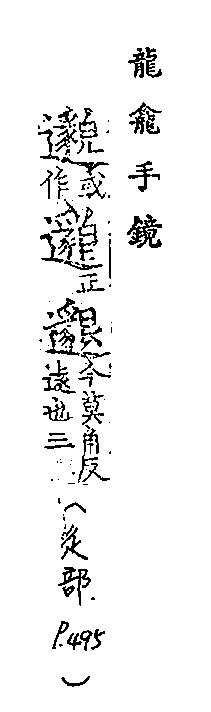 龍龕手鏡
或作正今莫角反遠也三(辵部. P.495)